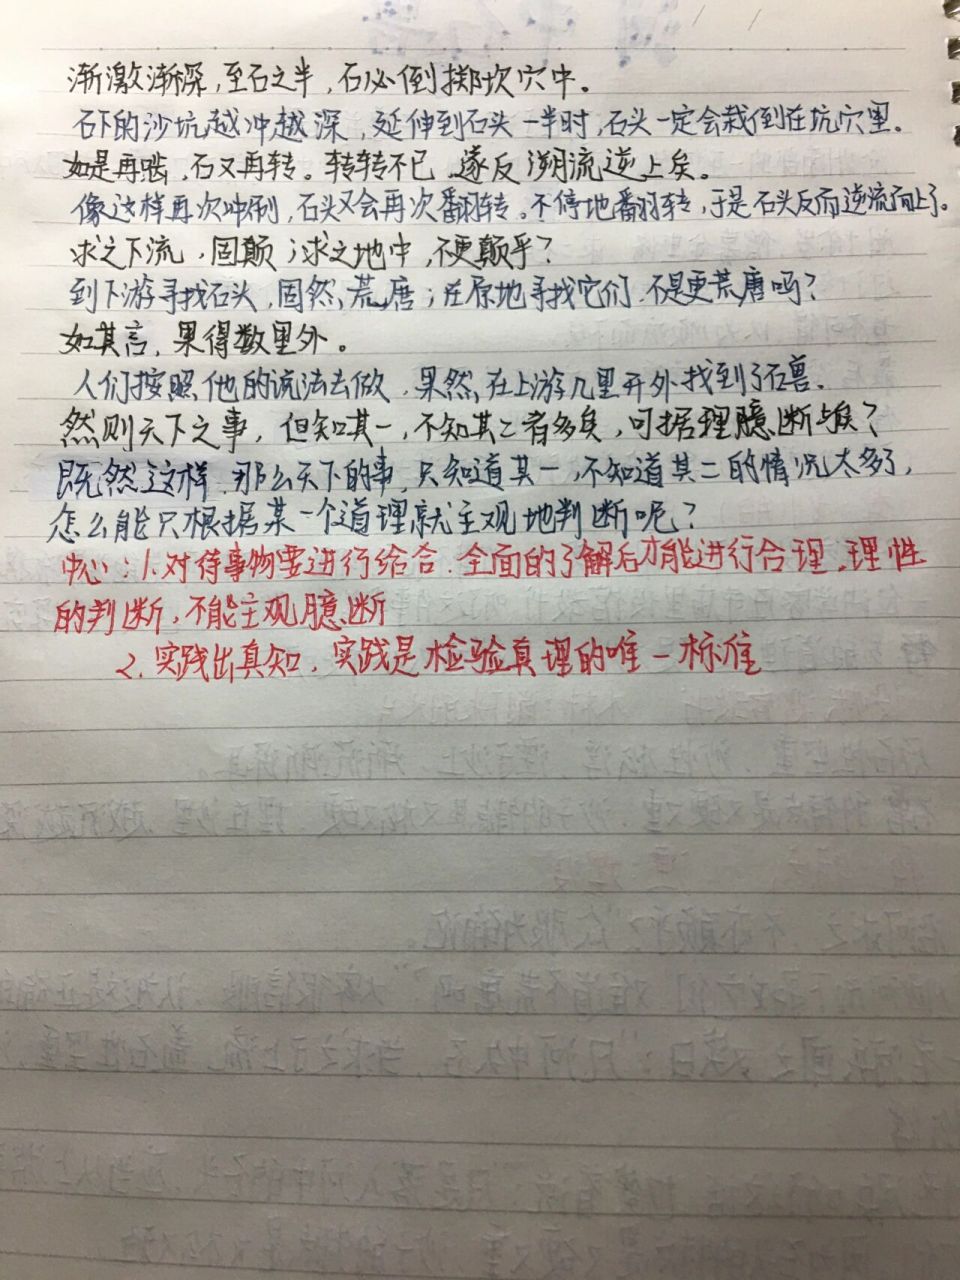 渐激渐深，至石之半，石必倒掷坎穴中。
石下的沙坑越冲越深，延伸到石头一半时，石头一定会栽倒在坑穴里。
如是再啮，石又再转。转转不已，遂反溯流逆上矣。
像这样再次冲刷，石头又会再次翻转。不停地翻转，于是石头反而逆流而上了。
求之下流，固颠；求之地中，不更颠乎？
到下游寻找石头，固然荒唐；在原地寻找它们，不是更荒唐吗？
如其言，果得数里外。
人们按照他的说法去做，果然在上游几里开外找到了石兽。
然则天下之事，但知其一，不知其二者多矣，可据理臆断与矣？
既然这样，那么天下的事，只知道其一，不知道其二的情况太多了，
怎么能只根据某一个道理就主观地判断呢？
中心：1.对待事物要进行结合、全面的了解后才能进行合理、理性
的判断，不能主观臆断
2.实践出真知，实践是检验真理的唯一标准